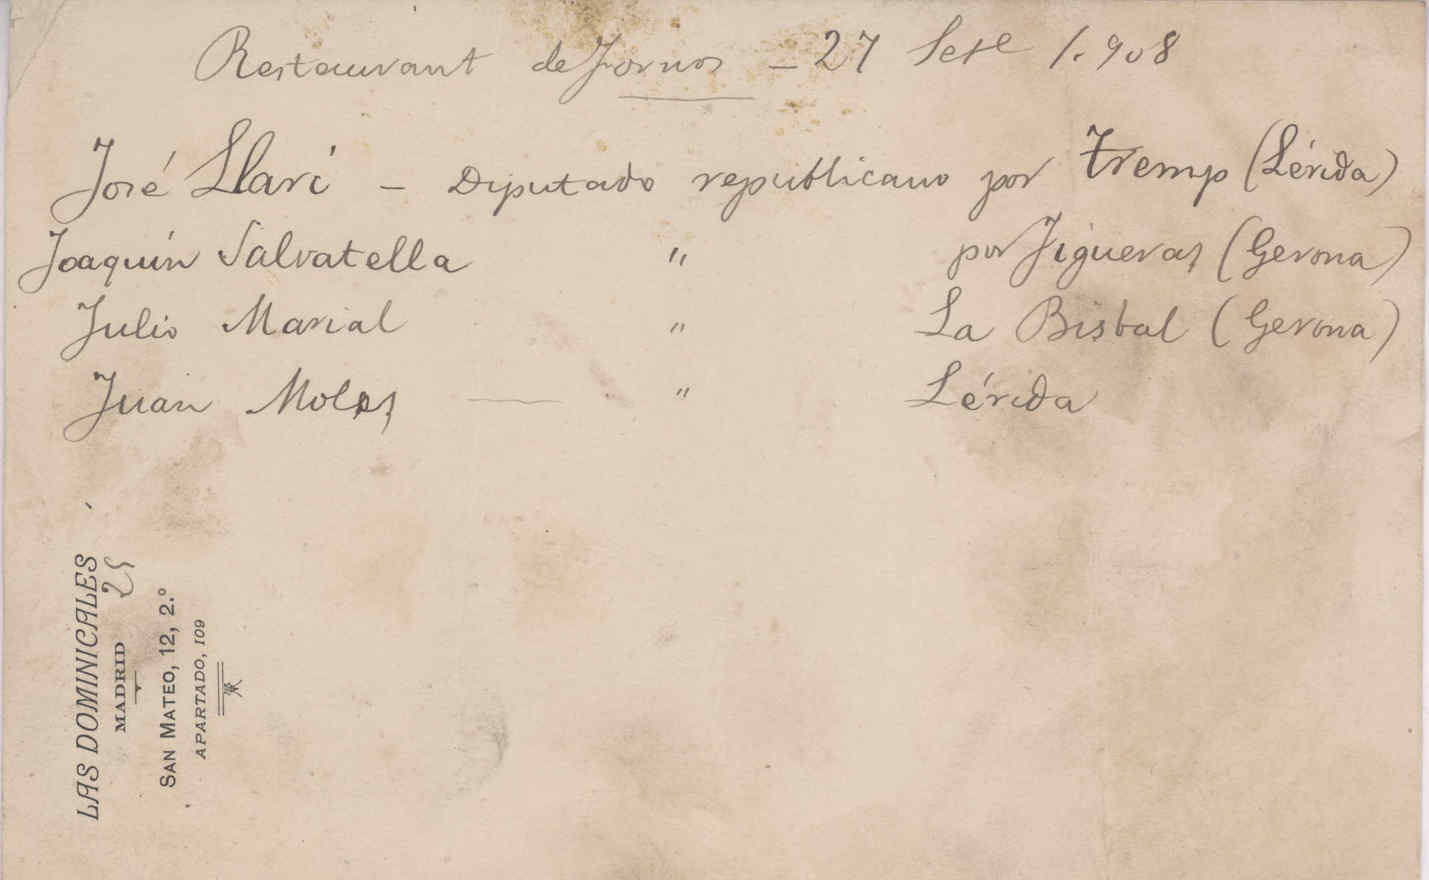 Restaurant de Fornos - 27 Sete 1.908
José Llari - Diputado republicano por Tremp (Lérida)
Joaquín Salvatella " por Figueras (Gerona)
Julio Marial " La Bisbal (Gerona)
Juan Moles — " Lérida
LAS DOMINICALES
25
MADRID
SAN MATEO, 12, 2.º
APARTADO, 109